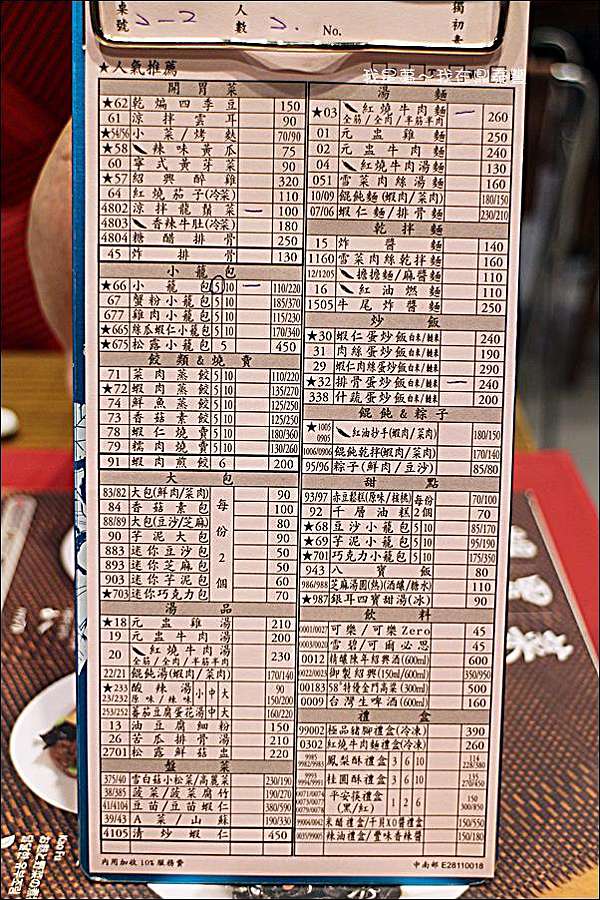 桌號 2-2 人數 2. No.
★人氣推薦
開胃菜
★62 乾煸四季豆 150
61 涼拌雲耳 90
★54/56 小菜/烤麩 70/90
★58 辣味黃瓜 75
60 寧式黃芽菜 90
★57 紹興醉雞 320
64 紅燒茄子(冷菜) 110
4802 涼拌龍鬚菜 一 100
4803 香辣牛肚(冷菜) 180
4804 糖醋排骨 250
45 炸排骨 130
小籠包
★66 小籠包 5 10 一 110/220
67 蟹粉小籠包 5 10 185/370
677 雞肉小籠包 5 10 115/230
★665 絲瓜蝦仁小籠包 5 10 170/340
★675 松露小籠包 5 450
餃類&燒賣
71 菜肉蒸餃 5 10 110/220
★72 蝦肉蒸餃 5 10 135/270
74 鮮魚蒸餃 5 10 125/250
73 香菇素餃 5 10 125/250
78 蝦仁燒賣 5 10 180/360
79 糯肉燒賣 5 10 130/260
91 蝦肉煎餃 6 200
大包
83/82 大包(鮮肉/菜肉) 90
84 香菇素包 100
88/89 大包(豆沙/芝麻) 80
90 芋泥大包 90
883 迷你豆沙包 50
893 迷你芝麻包 50
903 迷你芋泥包 60
★703 迷你巧克力包 70
每份2個
湯品
★18 元盅雞湯 210
19 元盅牛肉湯 200
20 紅燒牛肉湯 230
全筋/全肉/半筋半肉
22/21 餛飩湯(蝦肉/菜肉) 170/140
★233 酸辣湯 小 中 大 90
23/232 原味/辣味 150/200
253/252 蕃茄豆腐蛋花湯 中 大 160/220
13 油豆腐細粉 150
26 苦瓜排骨湯 210
2701 松露鮮菇盅 220
盤菜
375/40 雪白菇小松菜/高麗菜 230/190
38/385 菠菜/菠菜腐竹 190/270
41/4104 豆苗/豆苗蝦仁 380/590
39/43 A菜/山蘇 190/330
4105 清炒蝦仁 450
內用加收10%服務費
湯麵
★03 紅燒牛肉麵 一 260
全筋/全肉/半筋半肉
01 元盅雞麵 250
02 元盅牛肉麵 240
04 紅燒牛肉湯麵 130
051 雪菜肉絲湯麵 160
10/09 餛飩麵(蝦肉/菜肉) 180/150
07/06 蝦仁麵/排骨麵 230/210
乾拌麵
15 炸醬麵 140
1160 雪菜肉絲乾拌麵 160
12/1205 擔擔麵/麻醬麵 110
16 紅油燃麵 110
1505 牛尾炸醬麵 250
炒飯
★30 蝦仁蛋炒飯 白米/糙米 240
31 肉絲蛋炒飯 白米/糙米 190
29 蝦仁肉絲蛋炒飯 白米/糙米 290
★32 排骨蛋炒飯 白米/糙米 一 240
338 什蔬蛋炒飯 白米/糙米 200
餛飩&粽子
★1005 0905 紅油抄手(蝦肉/菜肉) 180/150
1006/0906 餛飩乾拌(蝦肉/菜肉) 170/140
95/96 粽子(鮮肉/豆沙) 85/80
甜點
93/97 赤豆鬆糕(原味/核桃) 每份 70/100
92 千層油糕 2個 70
★68 豆沙小籠包 5 10 85/170
★69 芋泥小籠包 5 10 95/190
★701 巧克力小籠包 5 10 175/350
943 八寶飯 80
986/988 芝麻湯圓(熱)(酒釀/糖水) 110
★987 銀耳四寶甜湯(冰) 90
飲料
0001/0027 可樂/可樂Zero 45
0003/0020 雪碧/可爾必思 45
0012 精釀陳年紹興酒(600ml) 600
0022/0023 御製紹興(150ml/600ml) 350/950
00183 58°特優金門高菜(300ml) 500
0009 台灣生啤酒(600ml) 160
禮盒
99002 極品豬腳禮盒(冷凍) 390
0302 紅燒牛肉麵禮盒(冷凍) 260
9985 9982/9983 鳳梨酥禮盒 3 6 10 114 228/380
9993 9994/9991 桂圓酥禮盒 3 6 10 135 270/450
平安筷禮盒 1 2 6 150
(黑/紅) 300/850
99004/0042 米醋禮盒/干貝XO醬禮盒 150/550
0035/9995 辣油禮盒/豐味香辣醬 150/180
中南部 E28110018